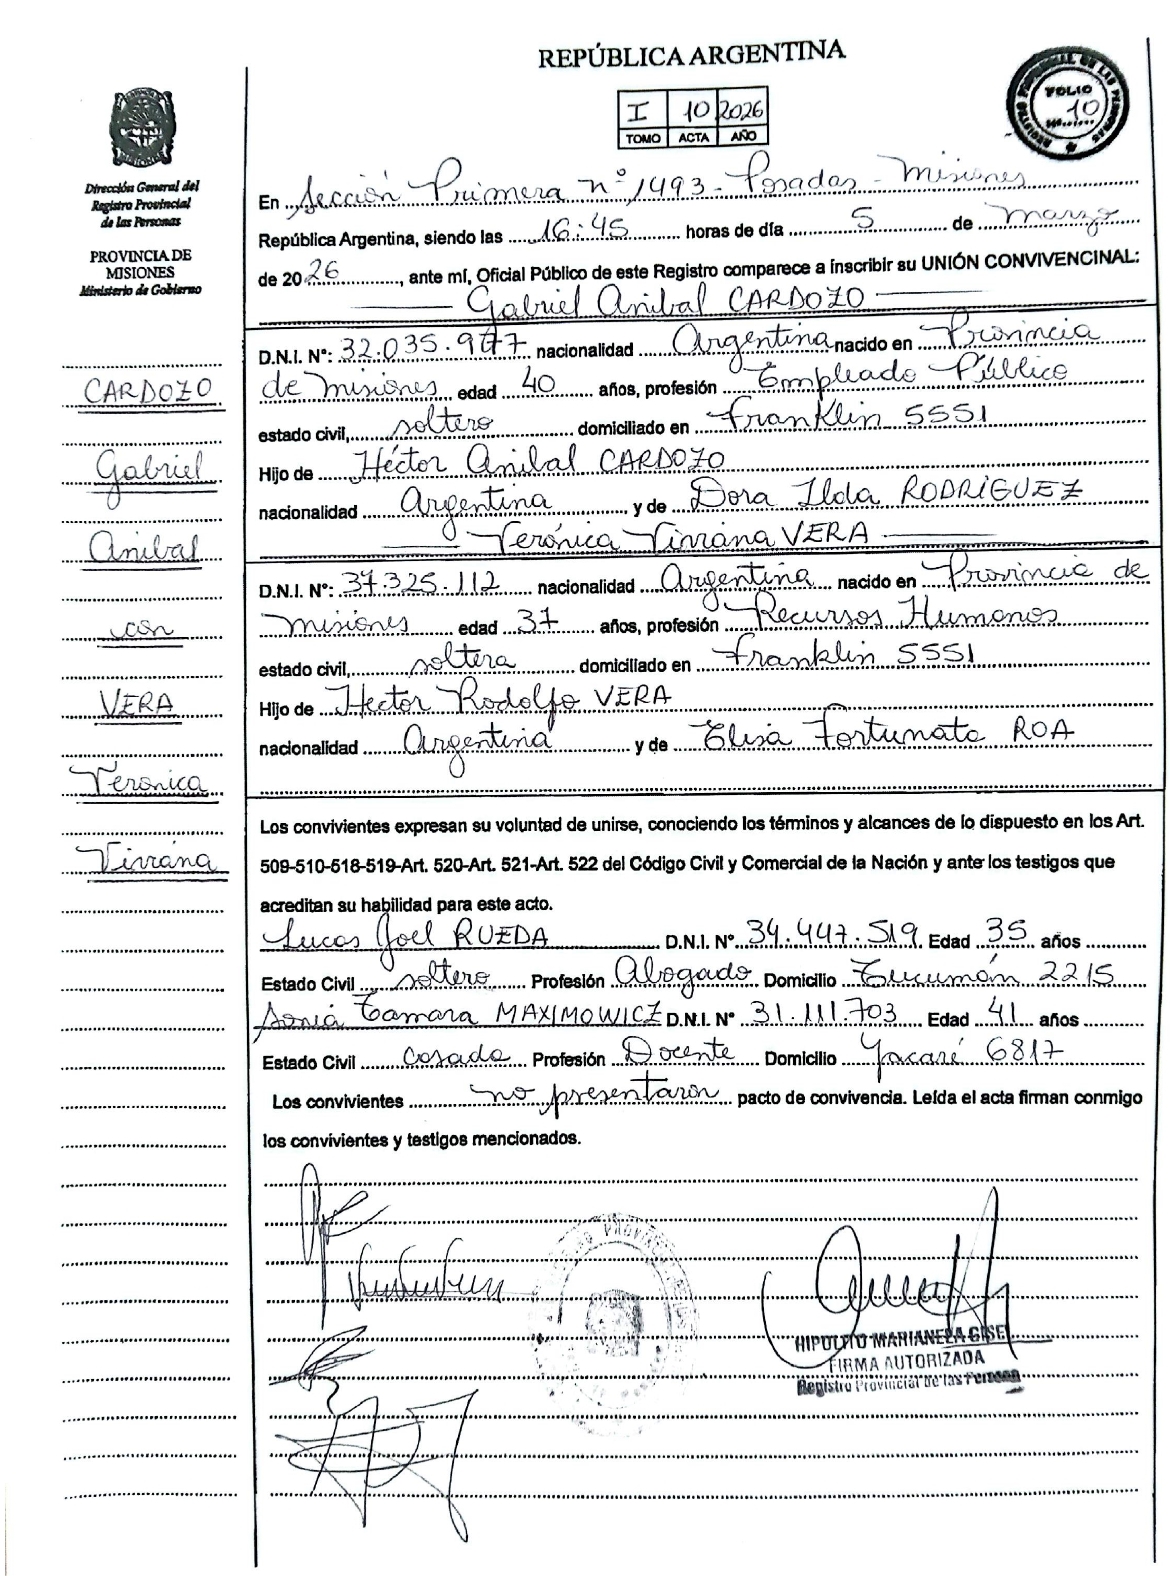 REPÚBLICA ARGENTINA
I 10 2026
TOMO ACTA AÑO
REGISTRO PROVINCIAL DE LAS PERSONAS
FOLIO
10
Nº
Dirección General del
Registro Provincial
de las Personas
PROVINCIA DE
MISIONES
Ministerio de Gobierno
CARDOZO
Gabriel
Anibal
con
VERA
Verónica
Viviana
En Sección Primera nº 1493 - Posadas - Misiones
República Argentina, siendo las 16:45 horas de día 5 de Marzo
de 2026, ante mí, Oficial Público de este Registro comparece a inscribir su UNIÓN CONVIVENCINAL:
Gabriel Anibal CARDOZO
D.N.I. Nº: 32.035.977 nacionalidad Argentina nacido en Provincia
de Misiones edad 40 años, profesión Empleado Público
estado civil, soltero domiciliado en Franklin 5551
Hijo de Héctor Anibal CARDOZO
nacionalidad Argentina y de Dora Ilda RODRÍGUEZ
Verónica Viviana VERA
D.N.I. Nº: 37.325.112 nacionalidad Argentina nacido en Provincia de
Misiones edad 37 años, profesión Recursos Humanos
estado civil, soltera domiciliado en Franklin 5551
Hijo de Hector Rodolfo VERA
nacionalidad Argentina y de Elisa Fortunata ROA
Los convivientes expresan su voluntad de unirse, conociendo los términos y alcances de lo dispuesto en los Art.
509-510-518-519-Art. 520-Art. 521-Art. 522 del Código Civil y Comercial de la Nación y ante los testigos que
acreditan su habilidad para este acto.
Lucas Joel RUEDA D.N.I. Nº 34.447.519 Edad 35 años
Estado Civil soltero Profesión Abogado Domicilio Tucumán 2215
Sonia Tamara MAXIMOWICZ D.N.I. Nº 31.111.703 Edad 41 años
Estado Civil casada Profesión Docente Domicilio Yacaré 6817
Los convivientes no presentaron pacto de convivencia. Leída el acta firman conmigo
los convivientes y testigos mencionados.
HIPOLITO MARIANELA GISEL
FIRMA AUTORIZADA
Registro Provincial de las Personas